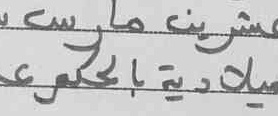 عشرين مارس
ميلادية بالحكم